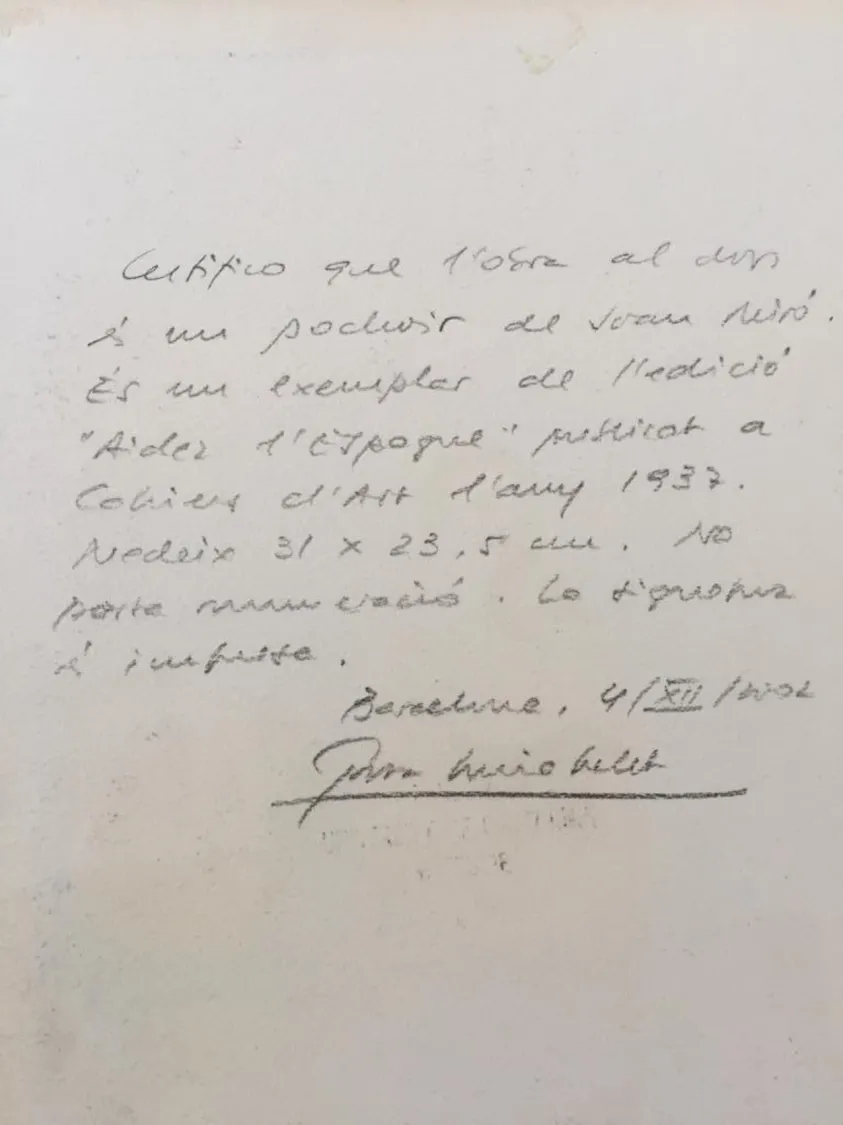 Certifico que l'obra al dors
és un pochoir de Joan Miró.
És un exemplar de l'edició
"Aidez l'Espagne" publicat a
Cahiers d'Art l'any 1937.
Medeix 31 x 23,5 cm. No
porta numeració. La signatura
és impresa.
Barcelona, 4/XII/2002